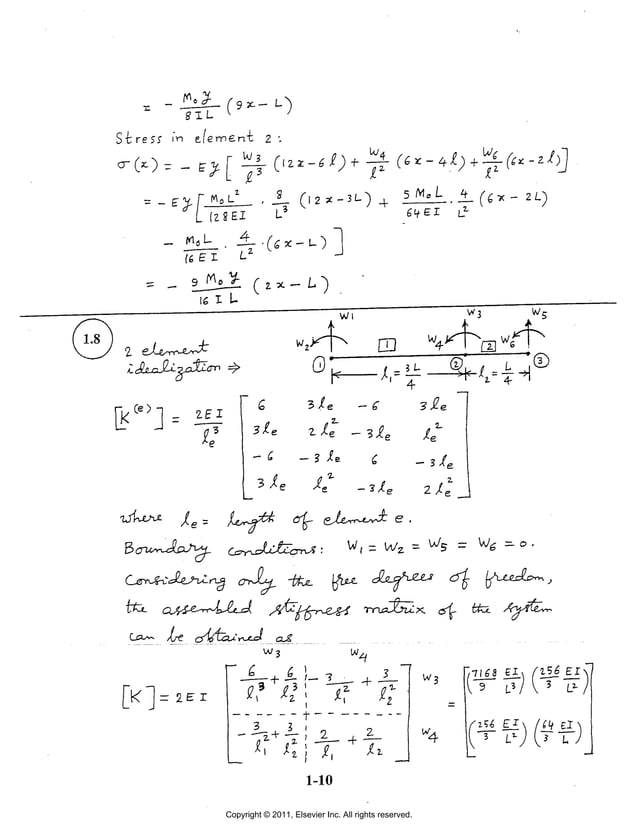 = - M₀y/8IL (9x - L)
Stress in element 2:
σ(x) = - Ey [ W₃/l³ (12x - 6l) + W₄/l² (6x - 4l) + W₆/l² (6x - 2l) ]
= - Ey [ M₀L²/128EI · 8/L³ (12x - 3L) + 5M₀L/64EI · 4/L² (6x - 2L)
- M₀L/16EI · 4/L² · (6x - L) ]
= - 9M₀y/16IL (2x - L)
1.8
2 element
idealization ⇒
W1 W3 W5
W₂ 1 W₄ 2 W₆
1 2 3
l₁ = 3L/4 l₂ = L/4
[K⁽ᵉ⁾] = 2EI/lₑ³ [ 6 3lₑ -6 3lₑ
3lₑ 2lₑ² -3lₑ lₑ²
-6 -3lₑ 6 -3lₑ
3lₑ lₑ² -3lₑ 2lₑ² ]
where lₑ = length of element e.
Boundary conditions: W₁ = W₂ = W₅ = W₆ = 0.
Considering only the free degrees of freedom,
the assembled stiffness matrix of the system
can be obtained as
W₃ W₄
[K] = 2EI [ 6/l₁³ + 6/l₂³ -3/l₁² + 3/l₂² ] W₃ = [ (7168/9 EI/L³) (256/3 EI/L²)
[ -3/l₁² + 3/l₂² 2/l₁ + 2/l₂ ] W₄ (256/3 EI/L²) (64/3 EI/L) ]
1-10
Copyright © 2011, Elsevier Inc. All rights reserved.